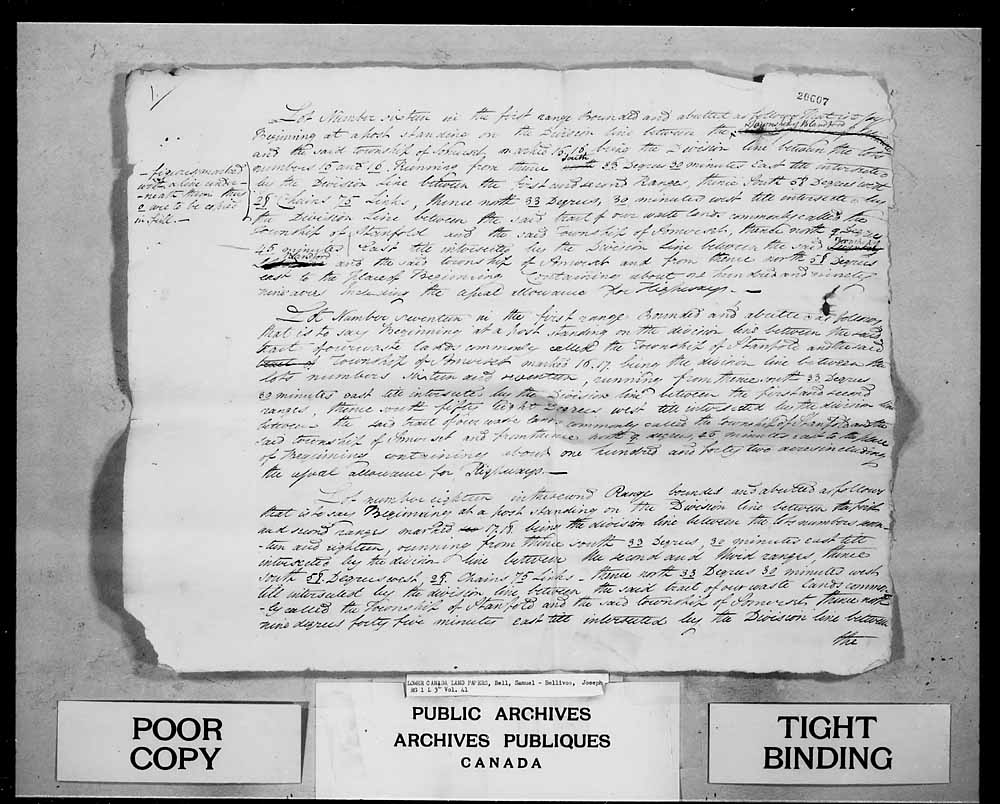 1.
20607
Lot Number sixteen in the first range Bounded and abutted as follows that is to say
Township of Blandford
Beginning at a post standing on the Division line between the
and the said township of Amerset, marked 15, 16, being the Division line between the lots
South
numbers 15 and 16. Running from thence 33 Degrees 30 minutes East till intersected
by the Division Line between the first and second Range, thence South 58 Degrees west
29 Chains 75 Links, thence north 33 Degrees, 30 minutes west till intersected by
the Division Line between the said tract of our waste lands commonly called the
Township of Stanfold and the said Township of Amerset, thence north 9 Degrees
45 minutes East till intersected by the Division Line between the said Township
of Blandford and the said township of Amerset and from thence north 58 Degrees
east to the place of Beginning Containing about one hundred and ninety
nine acres including the usual allowance for Highways. —
- figures marked
with a line under-
-neath them thus
2 are to be copied
in full. —
Lot Number Seventeen in the first range Bounded and abutted as follows
that is to say Beginning at a post standing on the division line between the said
tract of our waste lands commonly called the Township of Stanfold and the said
tract of Township of Amerset marked 16, 17, being the division line between the
lots numbers sixteen and seventeen, running from thence south 33 Degrees
30 minutes east till intersected by the Division line between the first and second
ranges, thence south fifty eight Degrees west till intersected by the division line
between the said tract of our waste lands commonly called the township of Stanfold and the
said township of Amerset and from thence north 9 degrees, 45 minutes east to the place
of Beginning containing about one hundred and forty two acres including
the usual allowance for Highways. —
Lot number eighteen in the second Range bounded and abutted as follows
that is to say Beginning at a post standing on the Division line between the first
and second ranges marked 17, 18, being the division line between the lots numbers seven-
-teen and eighteen, running from thence south 33 Degrees, 30 minutes east till
intersected by the division line between the second and third ranges, thence
South 58 Degrees west, 29 Chains 75 Links - thence north 33 Degrees 30 minutes west
till intersected by the division line between the said tract of our waste lands commo-
-ly called the Township of Stanfold and the said township of Amerset, thence north
nine degrees forty five minutes east till intersected by the Division line between
the
LOWER CANADA LAND PAPERS, Bell, Samuel - Bellivoo, Joseph
RG 1 L 3ᴸ Vol. 41
POOR
COPY
PUBLIC ARCHIVES
ARCHIVES PUBLIQUES
CANADA
TIGHT
BINDING